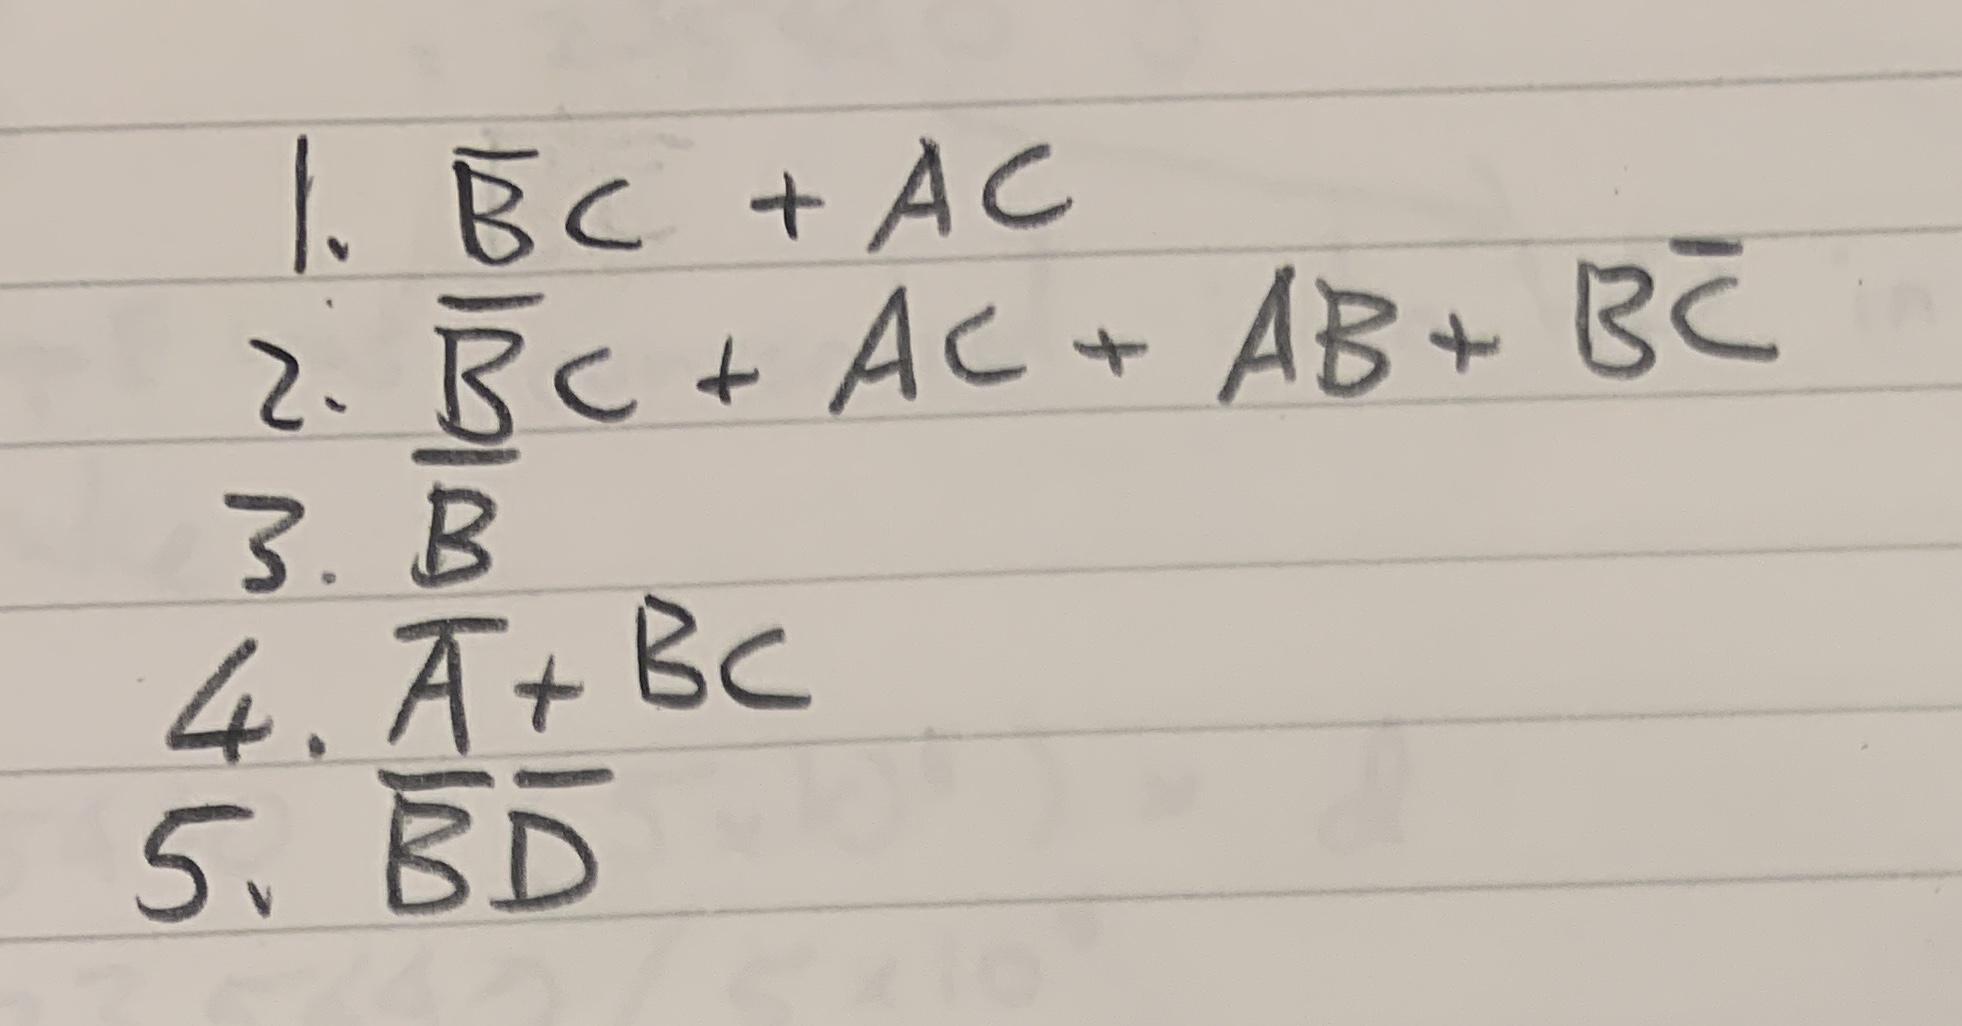 1. B̅C + AC
2. B̅C + AC + AB + BC̅
3. B̅
4. A̅ + BC
5. B̅D̅